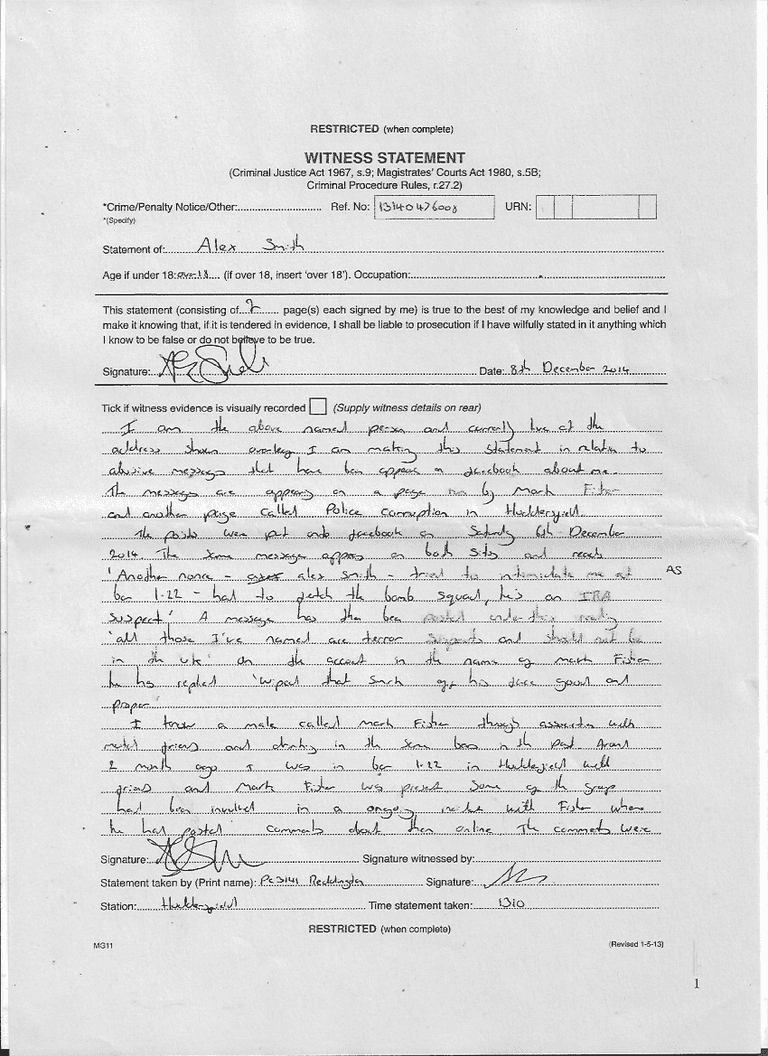 RESTRICTED (when complete)
WITNESS STATEMENT
(Criminal Justice Act 1967, s.9; Magistrates' Courts Act 1980, s.5B;
Criminal Procedure Rules, r.27.2)
*Crime/Penalty Notice/Other: Ref. No: 13140476008 URN:
*(Specify)
Statement of: Alex Smith
Age if under 18: over 18 (if over 18, insert 'over 18'). Occupation:
This statement (consisting of 2 page(s) each signed by me) is true to the best of my knowledge and belief and I
make it knowing that, if it is tendered in evidence, I shall be liable to prosecution if I have wilfully stated in it anything which
I know to be false or do not believe to be true.
Signature: Date: 8th December 2014
Tick if witness evidence is visually recorded (Supply witness details on rear)
I am the above named person and currently live at the
address shown overleaf I am making this statement in relation to
abusive messages that have been appear on facebook about me.
The messages are appearing on a page run by Mark Fisher
and another page called Police Corruption in Huddersfield.
The posts were put onto facebook on Saturday 6th December
2014. The same message appears on both sites and reads
'Another nonce - alex smith - tried to intimidate me at AS
bar 1:22 - had to fetch the bomb squad, he's an IRA
suspect' A message has then been posted under this reading
'all those I've named are terror suspects and should not be
in the UK' On the account in the name of Mark Fisher
he has replied 'Wiped that smirk off his face good and
proper'
I know a male called Mark Fisher through association with
mutual friends and drinking in the same bars in the past. Around
2 month ago I was in bar 1:22 in Huddersfield with
friends and Mark Fisher was present Some of the group
had been involved in a ongoing with Fisher where
he has posted comments about them online The comments were
Signature: Signature witnessed by:
Statement taken by (Print name): PC 3141 Reddington Signature:
Station: Huddersfield Time statement taken: 1310
RESTRICTED (when complete)
MG11 (Revised 1-5-13)
1